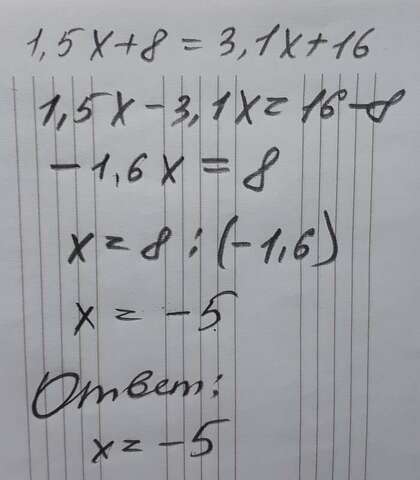 1,5x+8=3,1x+16
1,5x-3,1x=16-8
-1,6x=8
x=8:(-1,6)
x=-5
Ответ:
x=-5